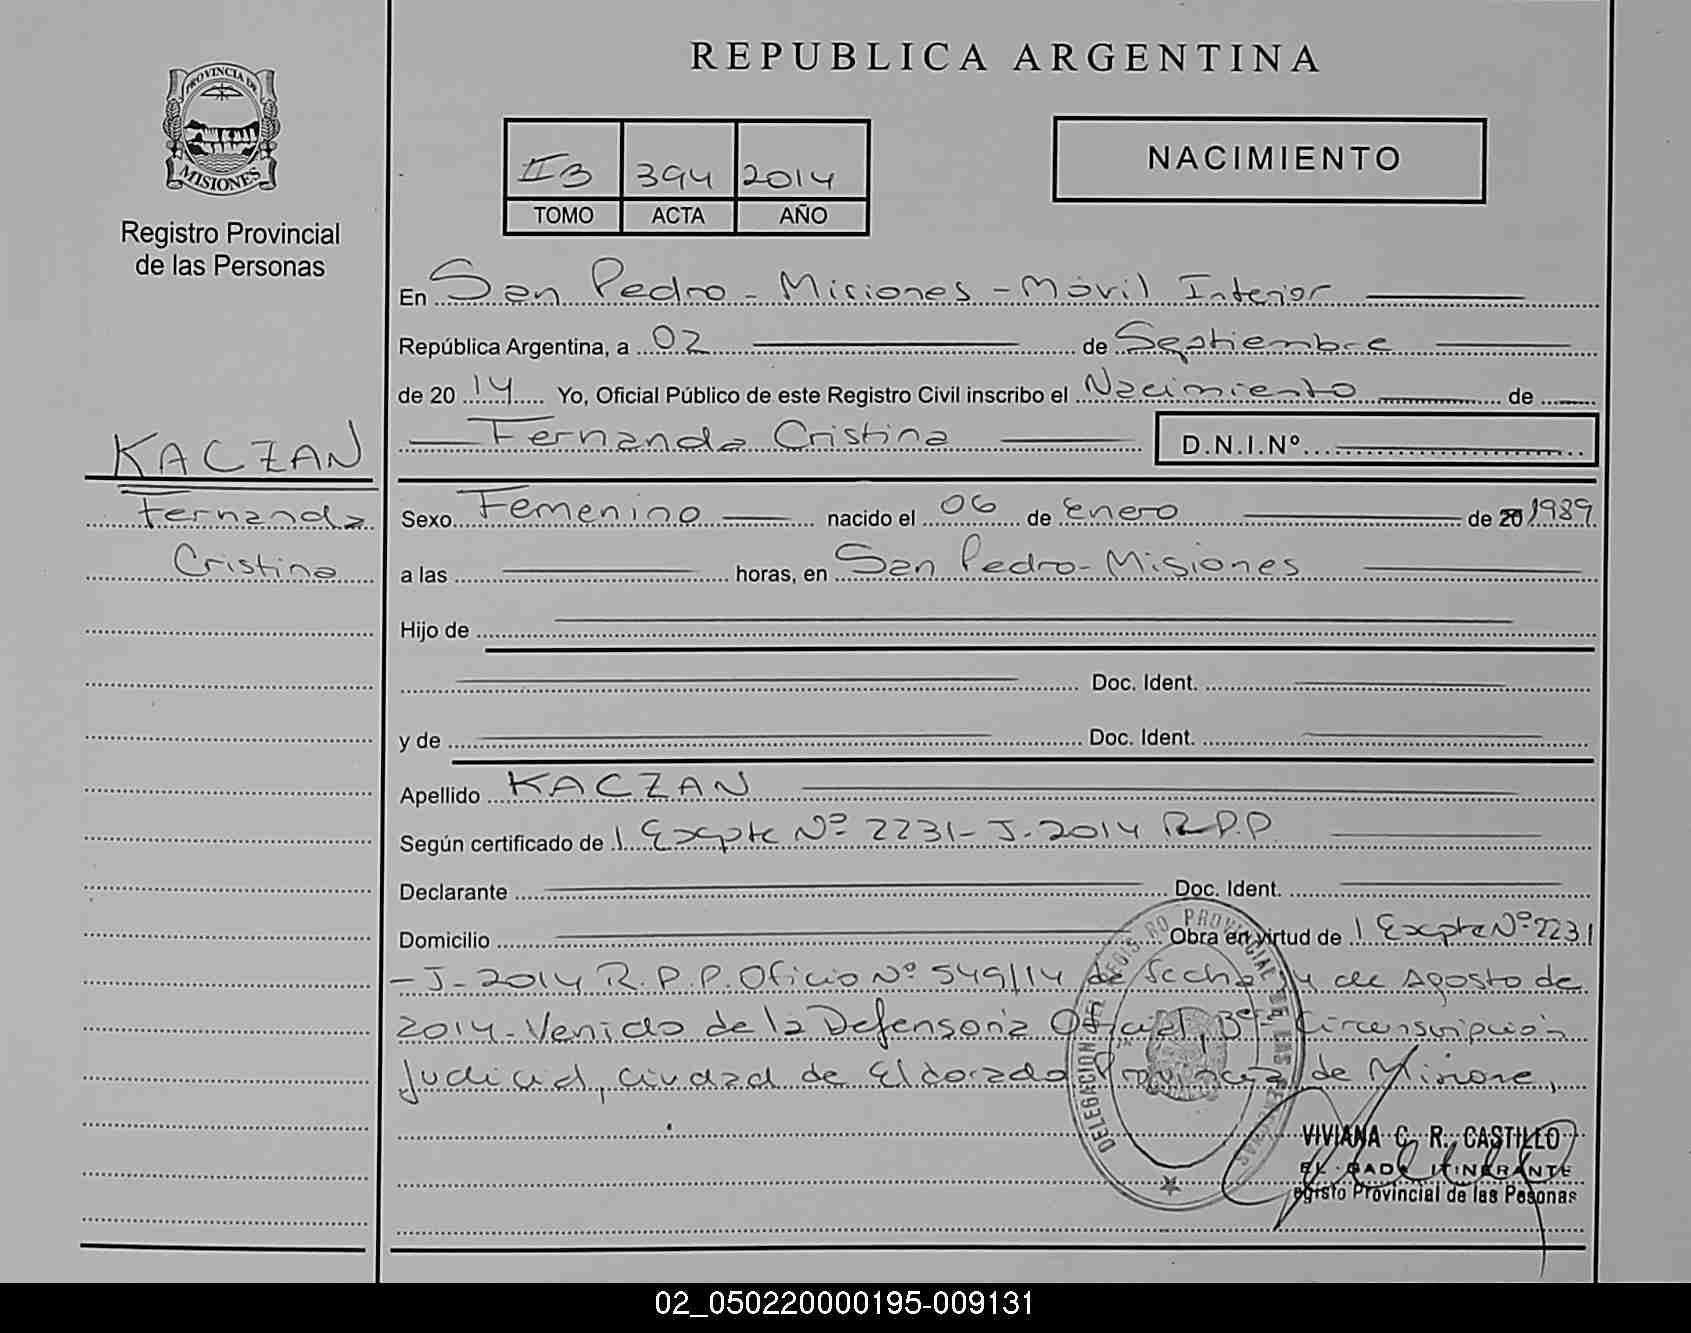 REPUBLICA ARGENTINA
PROVINCIA DE
MISIONES
Registro Provincial
de las Personas
II B 394 2014
TOMO ACTA AÑO
NACIMIENTO
En San Pedro - Misiones - Móvil Interior
República Argentina, a 02 de Septiembre
de 20 14 Yo, Oficial Público de este Registro Civil inscribo el Nacimiento de
Fernanda Cristina D.N.I.Nº
KACZAN
Fernanda
Cristina
Sexo Femenino nacido el 06 de Enero de 20 1989
a las horas, en San Pedro - Misiones
Hijo de
Doc. Ident.
y de Doc. Ident.
Apellido KACZAN
Según certificado de 1 Expte Nº 2231-J-2014 R.P.P
Declarante Doc. Ident.
Domicilio Obra en virtud de 1 Expte Nº 2231
- J - 2014 R.P.P. Oficio Nº 549/14 de fecha 4 de Agosto de
2014 - Venido de la Defensoría Oficial, 3era Circunscripción
Judicial, ciudad de Eldorado Provincia de Misiones,
DELEGACION DEL REGISTRO PROVINCIAL DE LAS PERSONAS
VIVIANA C. R. CASTILLO
ITINERANTE
Provincial de las Pesonas
02_050220000195-009131